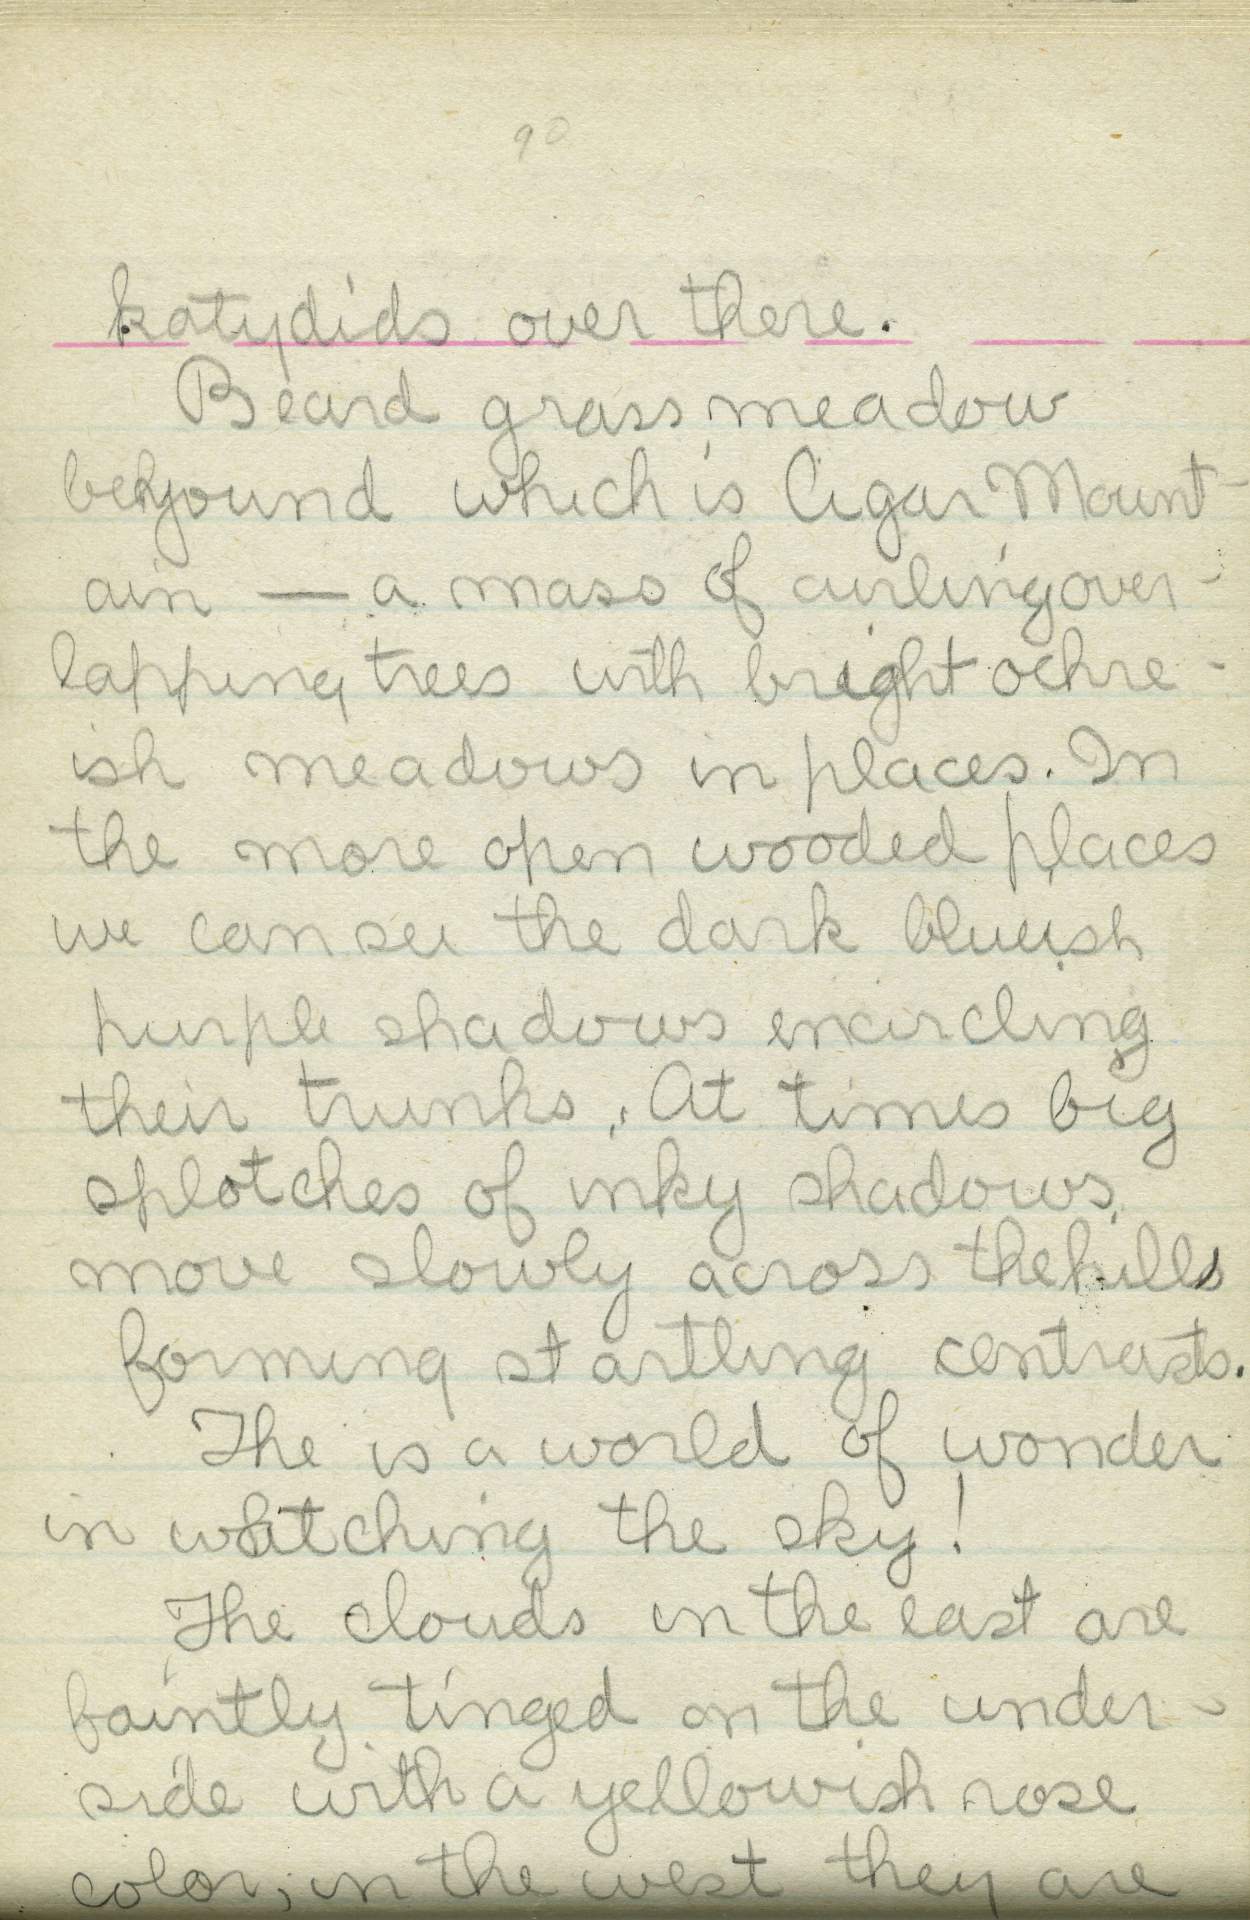 90
katydids over there.
Beard grass meadow
beyound which is Cigar Mount-
ain — a mass of curling over-
lapping trees with bright ochre-
ish meadows in places. In
the more open wooded places
we can see the dark blueish
purple shadows encircling
their trunks. At times big
splotches of inky shadows
move slowly across the hills
forming startling contrasts.
The is a world of wonder
in watching the sky!
The clouds in the east are
faintly tinged on the under-
side with a yellowish rose
color; in the west they are